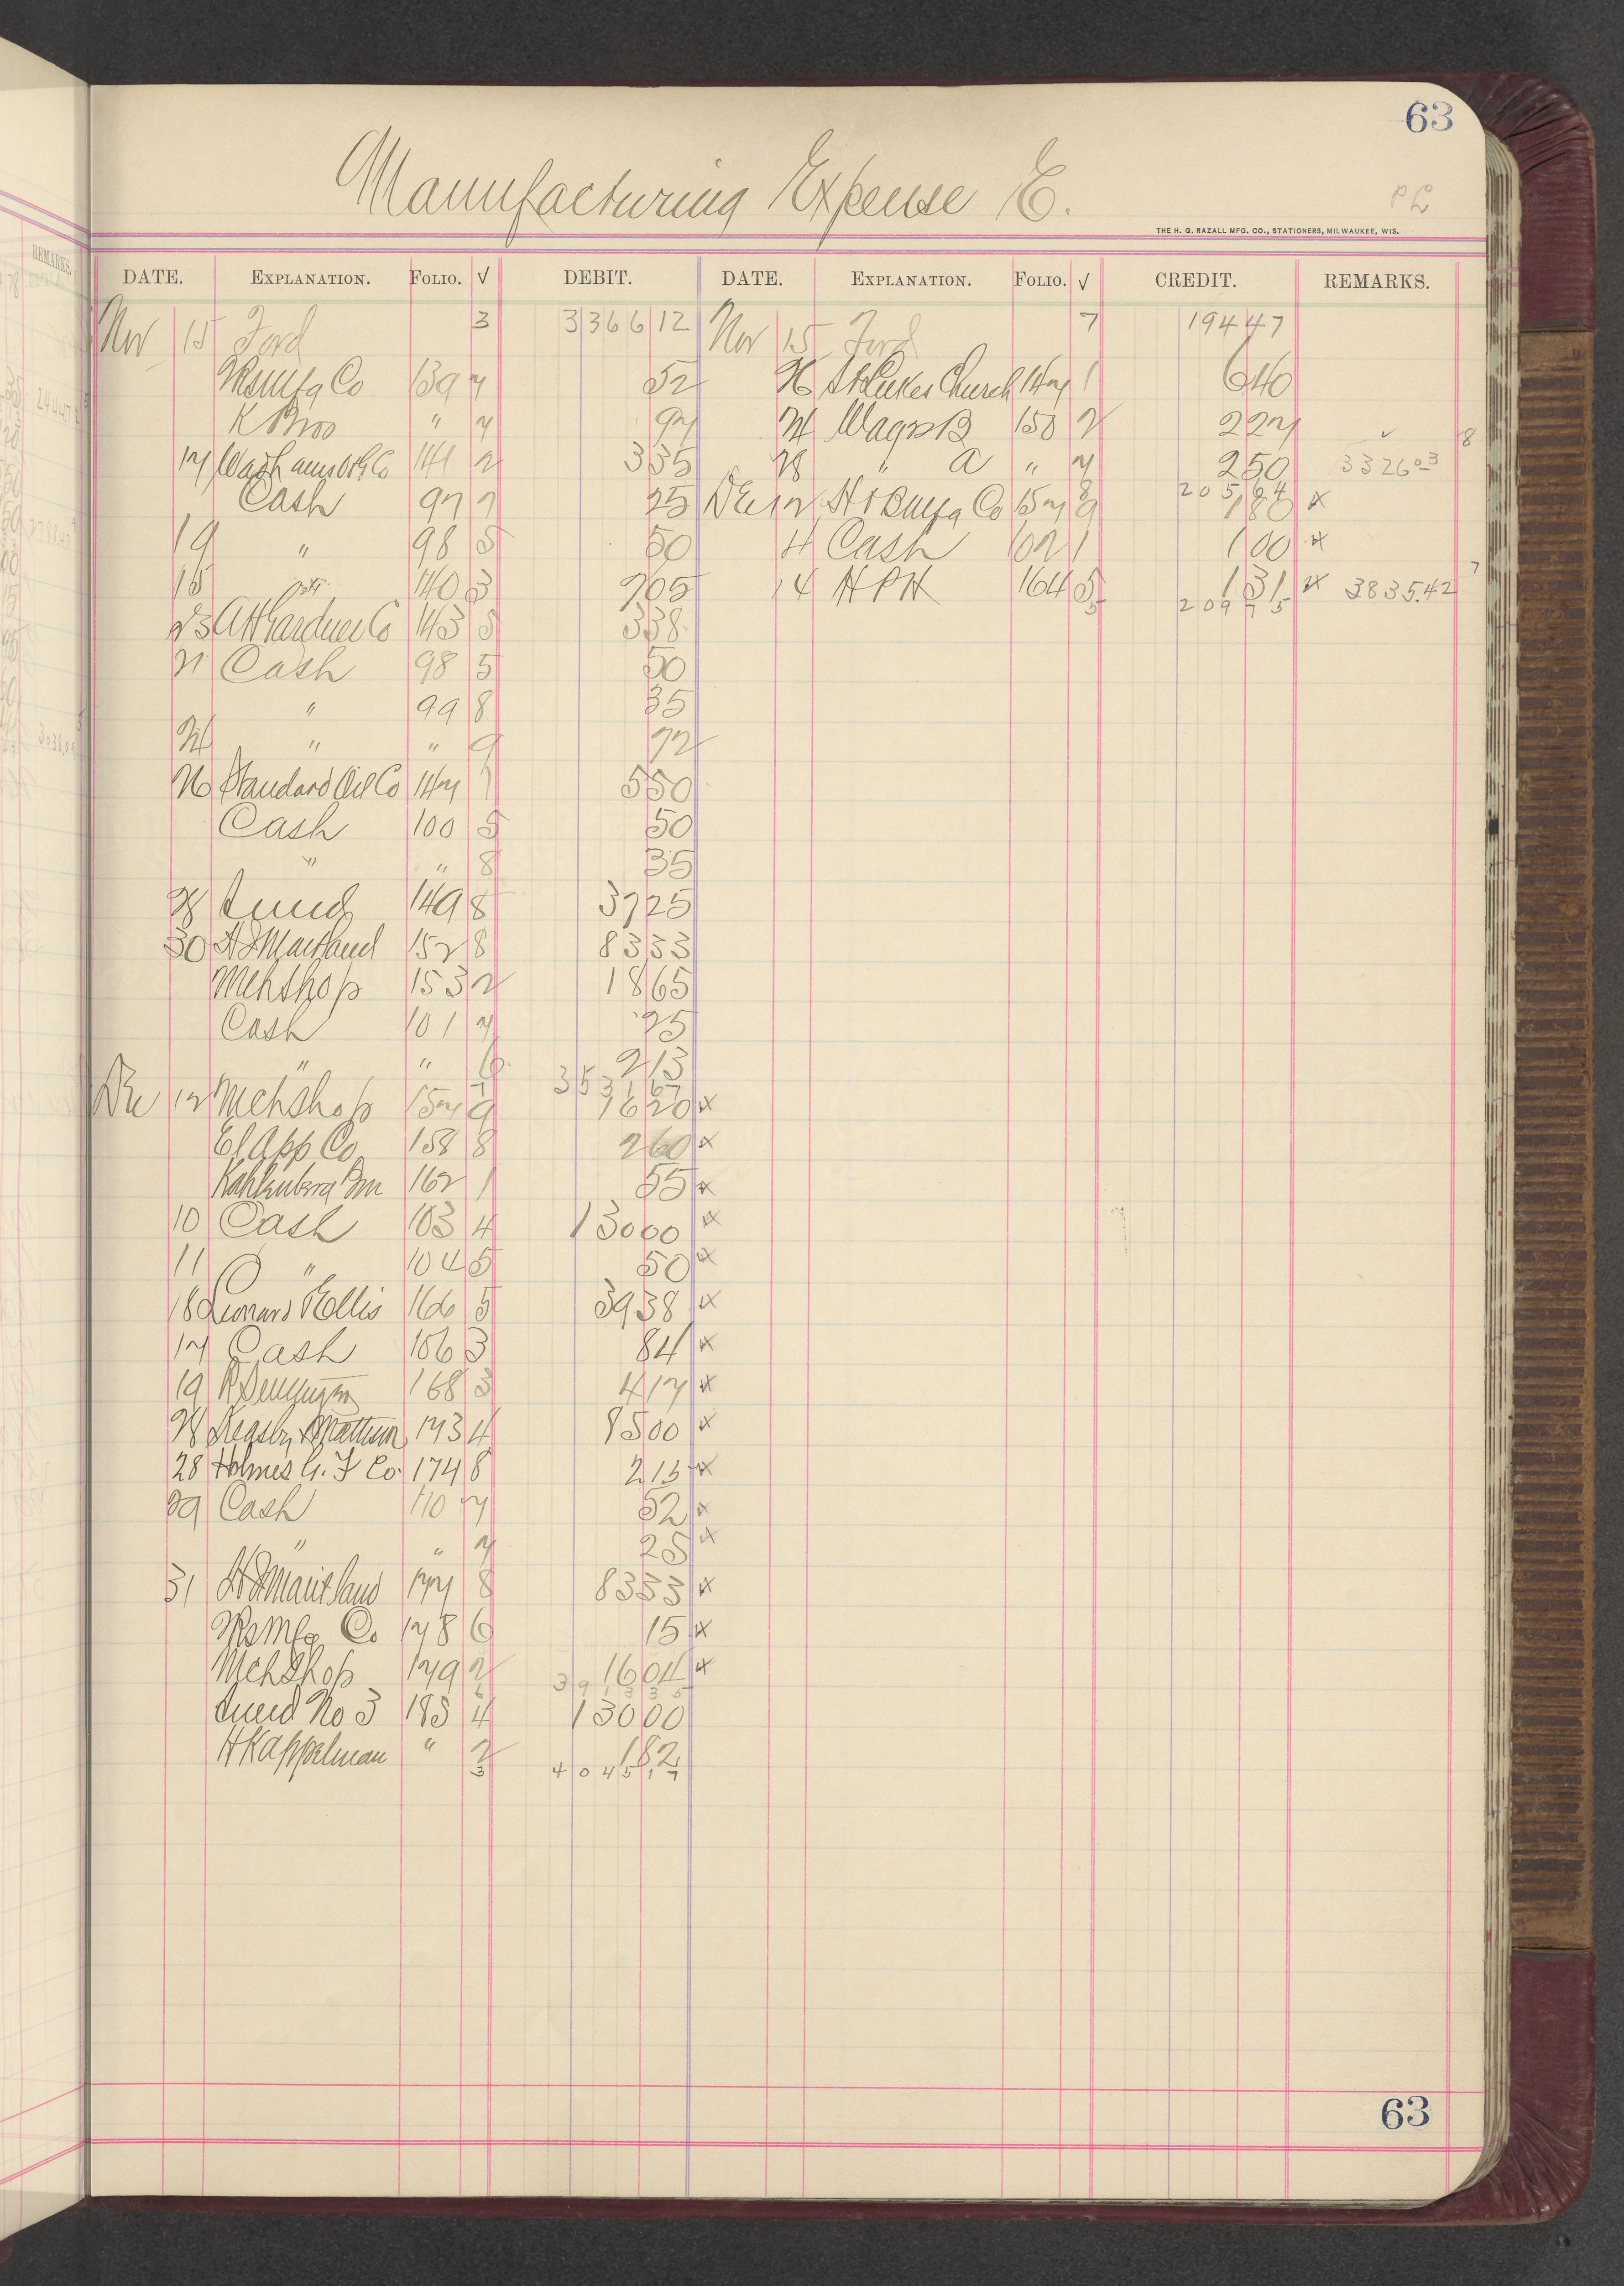 63
Manufacturing Expense E.
P L
THE H. G. RAZALL MFG. CO., STATIONERS, MILWAUKEE, WIS.
DATE. EXPLANATION. FOLIO. √ DEBIT. DATE. EXPLANATION. FOLIO. √ CREDIT. REMARKS.
Nov 15 Ford 3 3366 12 Nov 15 Ford 7 194 47
Mfg Co 139 7 52 26 St Lukes Church 147 1 6 40
K Bros " 7 97 24 Wagr B 150 2 2 27 8
17 141 2 3 35 28 " a " 7 2 50 3326 03
Cash 97 7 25 205 64
Dec 12 H & B Mfg Co 157 9 1 80 x
19 " 98 5 50 4 Cash 102 1 1 00 x
18 140 3 7 05 14 H P H 164 5 1 31 x 3835.42 7
5 209 75
23 A H Gardner Co 143 5 3 38
21 Cash 98 5 50
" 99 8 35
24 " " 9 72
26 Standard Oil Co 147 1 5 50
Cash 100 5 50
" " 8 35
28 149 8 37 25
30 H S Maitland 152 8 83 33
Meh Shop 153 2 18 65
Cash 101 7 25
" " 6 2 13
7 3531 67
Dec 12 Meh Shop 157 9 16 20 x
El App Co 158 8 2 60 x
Kahlenberg Bro 162 1 55 x
10 Cash 103 4 130 00 x
11 " 104 5 50 x
18 Leonard & Ellis 166 5 39 38 x
17 Cash 106 3 84 x
19 168 3 4 17 x
28 Keasby & Mattison 173 4 85 00 x
28 Holmes G. F Co. 174 8 2 13 x
29 Cash 110 7 52 x
" " 7 25 x
31 H S Maitland 177 8 83 33 x
Mfg Co 178 6 15 x
Meh Shop 179 2 16 04 x
6 3913 35
No 3 185 4 130 00
H Kappelman " 2 1 82
3 4045.17
63